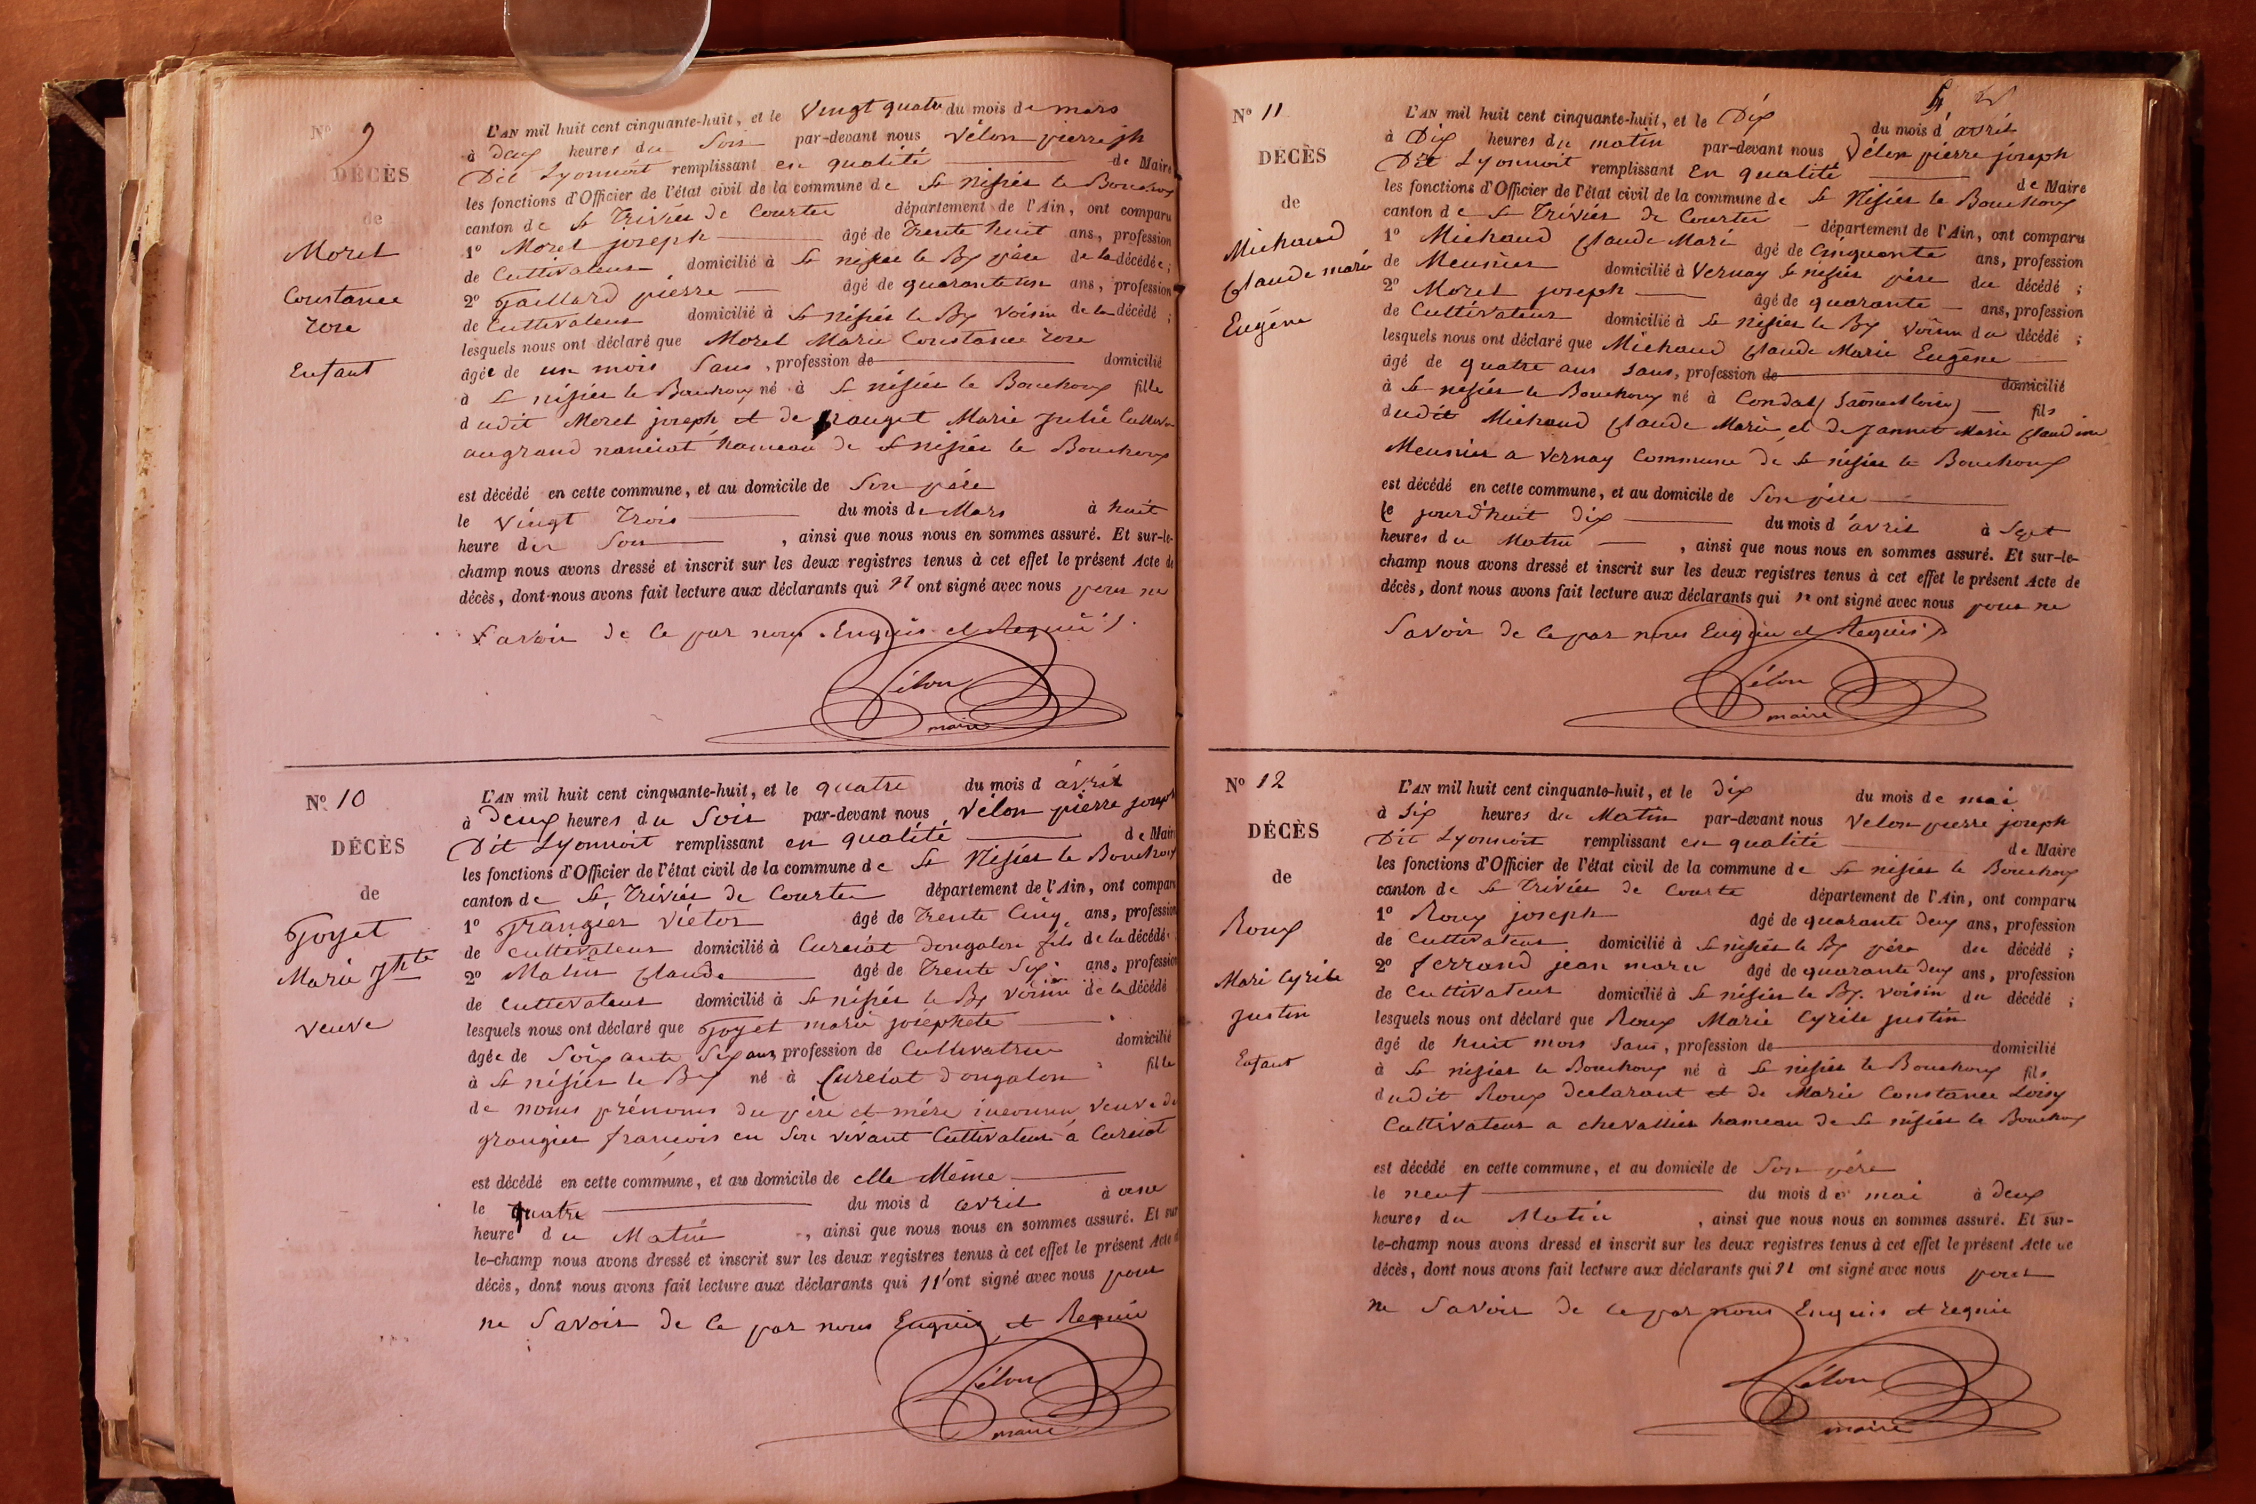 No 9
DÉCÈS
de
Moret
Constance
rose
Enfant
L'AN mil huit cent cinquante-huit, et le Vingt quatre du mois de mars
à deux heures du Soir par-devant nous Vélon pierre jh
Dit Lyonnoit remplissant en qualité de Maire
les fonctions d'Officier de l'état civil de la commune de St Nisier le Bouchoux
canton de St Trivier de Courtes département de l'Ain, ont comparu
1o Moret joseph âgé de Trente huit ans, profession
de Cultivateur, domicilié à St nisier le Bx père de la décédée;
2o Gaillard pierre âgé de quarante un ans, profession
de Cultivateur domicilié à St nisier le Bx Voisin de la décédé;
lesquels nous ont déclaré que Moret Marie Constance rose
âgée de un mois Sans, profession de domicilié
à St nisier le Bouchoux né à St nisier le Bouchoux fille
dudit Moret joseph et de Marie Julie
au grand hameau de St nisier le Bouchoux
est décédé en cette commune, et au domicile de Son père
le Vingt Trois du mois de Mars à huit
heure du Soir, ainsi que nous nous en sommes assuré. Et sur-le-
champ nous avons dressé et inscrit sur les deux registres tenus à cet effet le présent Acte de
décès, dont nous avons fait lecture aux déclarants qui n'ont signé avec nous pour ne
Savoir de ce par nous Enquis et Requis
Vélon
maire
No 10
DÉCÈS
de
Goyet
Marie Jhte
veuve
L'AN mil huit cent cinquante-huit, et le quatre du mois d avril
à Deux heures du Soir par-devant nous, Vélon pierre joseph
Dit Lyonnoit remplissant en qualité de Maire
les fonctions d'Officier de l'état civil de la commune de St Nisier le Bouchoux
canton de St Trivier de Courtes département de l'Ain, ont comparu
1o Grangier Victor âgé de Trente Cinq ans, profession
de Cultivateur domicilié à Curciat dongalon fils de la décédé
2o Matin Claude âgé de Trente Six ans, profession
de Cultivateur domicilié à St nisier le Bx Voisin de la décédé
lesquels nous ont déclaré que Goyet marie josephete
âgée de Soixante Six ans profession de Cultivatrice domicilié
à St nisier le Bx né à Curciat dongalon fille
de noms prénoms du père et mère inconnu veuve de
grangier françois en Son vivant Cultivateur à Curciat
est décédé en cette commune, et au domicile de elle Même
le quatre du mois d avril à onze
heure du Matin, ainsi que nous nous en sommes assuré. Et sur
le-champ nous avons dressé et inscrit sur les deux registres tenus à cet effet le présent Acte d
décès, dont nous avons fait lecture aux déclarants qui n'ont signé avec nous pour
ne Savoir de ce par nous Enquis et Requis
Vélon
maire
No 11
DÉCÈS
de
Michaud
Claude marie
Eugéne
L'AN mil huit cent cinquante-huit, et le Dix du mois d'avril
à Dix heures du matin par-devant nous Vélon pierre joseph
Dit Lyonnoit remplissant En qualité de Maire
les fonctions d'Officier de l'état civil de la commune de St Nisier le Bouchoux
canton de St Trivier de Courtes département de l'Ain, ont comparu
1o Michaud Claude Marie âgé de Cinquante ans, profession
de Meunier domicilié à Vernay St nisier père du décédé;
2o Moret joseph âgé de quarante ans, profession
de Cultivateur domicilié à St nisier le Bx Voisin du décédé;
lesquels nous ont déclaré que Michaud Claude Marie Eugéne
âgé de quatre ans Sans, profession de domicilié
à St nisier le Bouchoux né à Condal (Saone et loire) fils
dudit Michaud Claude Marie et de jannet Marie Claudine
Meunier a Vernay Commune de St nisier le Bouchoux
est décédé en cette commune, et au domicile de Son père
le jourd'huit dix du mois d'avril à Sept
heures du Matin, ainsi que nous nous en sommes assuré. Et sur-le-
champ nous avons dressé et inscrit sur les deux registres tenus à cet effet le présent Acte de
décès, dont nous avons fait lecture aux déclarants qui n'ont signé avec nous pour ne
Savoir de ce par nous Enquis et Requis
Vélon
maire
No 12
DÉCÈS
de
Roux
Marie Cyrile
justin
Enfant
L'AN mil huit cent cinquante-huit, et le dix du mois de mai
à Six heures du Matin par-devant nous Velon pierre joseph
Dit Lyonnoit remplissant en qualité de Maire
les fonctions d'Officier de l'état civil de la commune de St nisier le Bouchoux
canton de St Trivier de Courte département de l'Ain, ont comparu
1o Roux joseph âgé de quarante deux ans, profession
de Cultivateur domicilié à St nisier le Bx père du décédé;
2o ferrand jean marie âgé de quarante deux ans, profession
de Cultivateur domicilié à St nisier le Bx. Voisin du décédé;
lesquels nous ont déclaré que Roux Marie Cyrile justin
âgé de huit mois Sans, profession de domicilié
à St nisier le Bouchoux né à St nisier le Bouchoux fils
dudit Roux declarant et de Marie Constance Loisy
Cultivateur a chevallier hameau de St nisier le Bouchoux
est décédé en cette commune, et au domicile de Son père
le neuf du mois de mai à deux
heures du Matin, ainsi que nous nous en sommes assuré. Et sur-
le-champ nous avons dressé et inscrit sur les deux registres tenus à cet effet le présent Acte de
décès, dont nous avons fait lecture aux déclarants qui n'ont signé avec nous pour
ne Savoir de ce par nous Enquis et requis
Vélon
maire